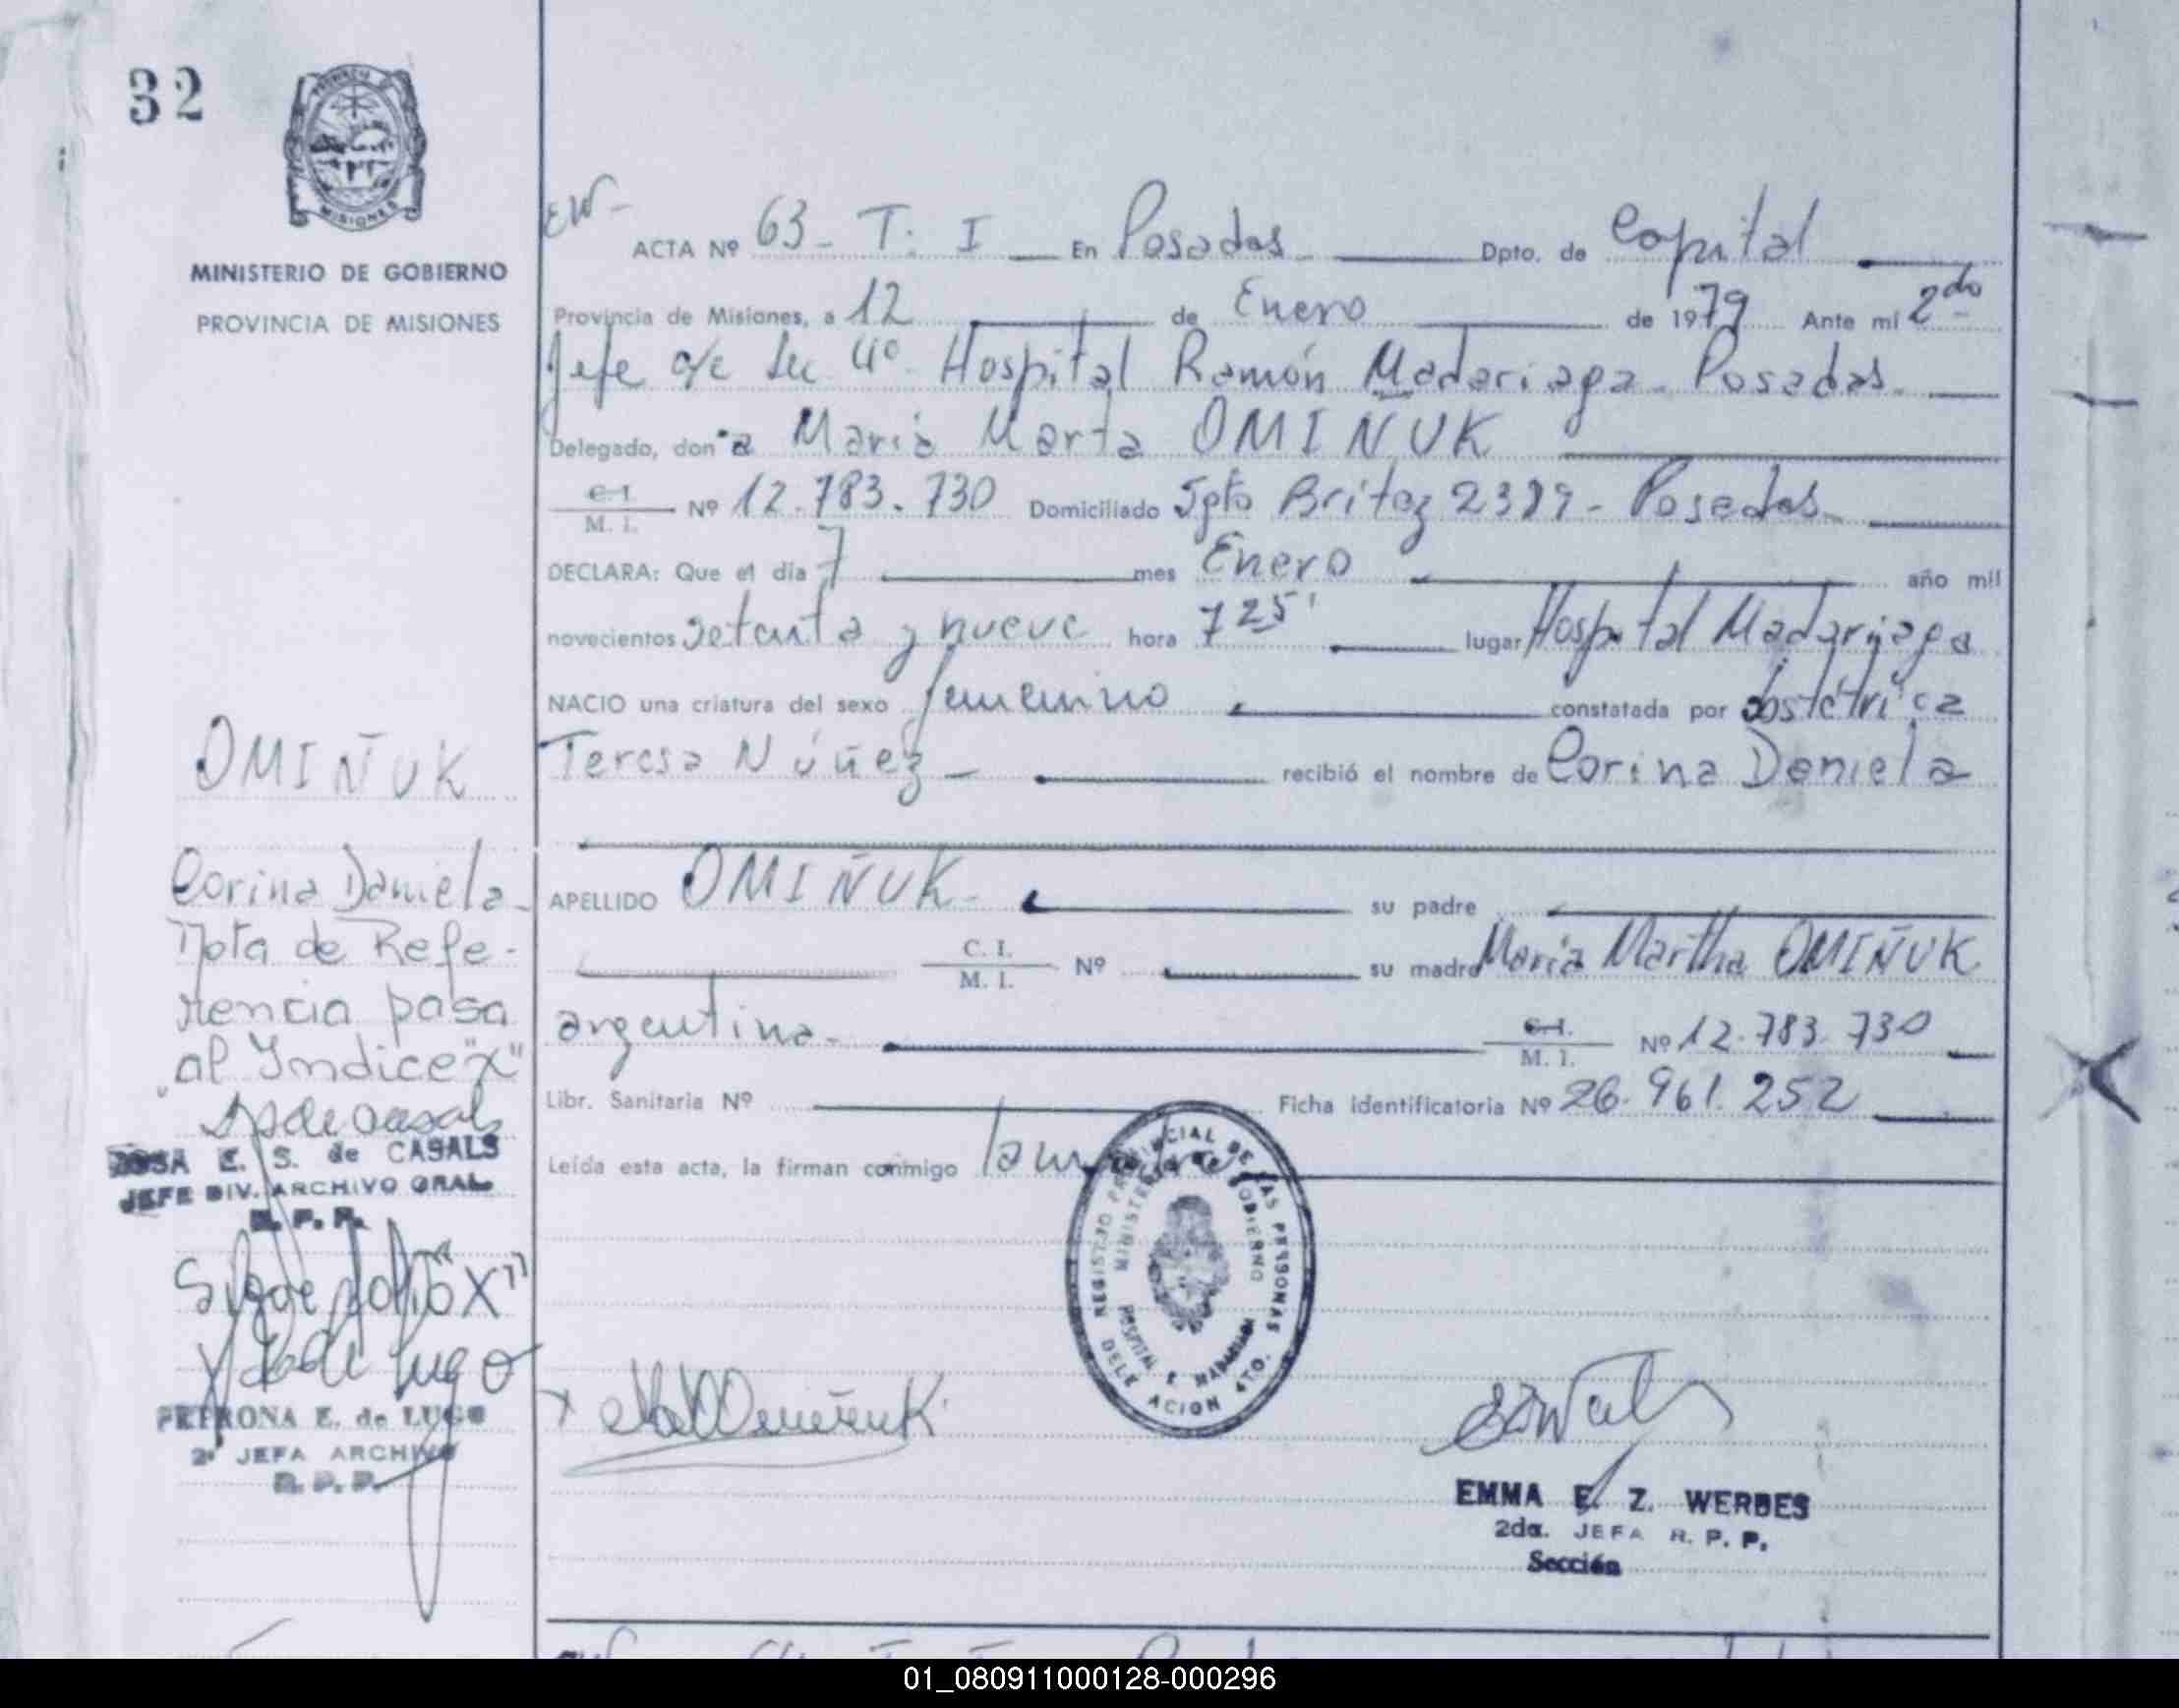 32
PROVINCIA DE
MISIONES
MINISTERIO DE GOBIERNO
PROVINCIA DE MISIONES
EW-
ACTA Nº 63- T: I En Posadas Dpto. de Capital
Provincia de Misiones, a 12 de Enero de 1979 Ante mi 2do
Jefe a/c Sec 4º Hospital Ramón Madariaga - Posadas
Delegado, don a Maria Marta OMIÑUK
C. I. / M. I. Nº 12.783.730 Domiciliado Sgto Britez 2389 - Posadas
DECLARA: Que el día 7 mes Enero año mil
novecientos setenta y nueve hora 7 25' lugar Hospital Madariaga
NACIO una criatura del sexo femenino constatada por obstétrica
Teresa Núñez - recibió el nombre de Corina Daniela
APELLIDO OMIÑUK - su padre
C. I. / M. I. Nº su madre María Martha OMIÑUK
argentina - C. I. / M. I. Nº 12.783.730
Libr. Sanitaria Nº Ficha identificatoria Nº 26.961.252
Leída esta acta, la firman conmigo la madre
REGISTRO PROVINCIAL DE LAS PERSONAS
MINISTERIO DE GOBIERNO
HOSPITAL R. MADARIAGA
DELEGACION 4TO.
x Omiñuk
EMMA E. Z. WERBES
2da. JEFA R. P. P.
Sección
OMIÑUK
Corina Daniela -
Nota de Refe-
rencia pasa
al Indice "X"
ROSA E. S. de CASALS
JEFE DIV. ARCHIVO GRAL.
R. P. P.
Sigue folio "X"
PETRONA E. de LUGO
2º JEFA ARCHIVO
R. P. P.
01_080911000128-000296